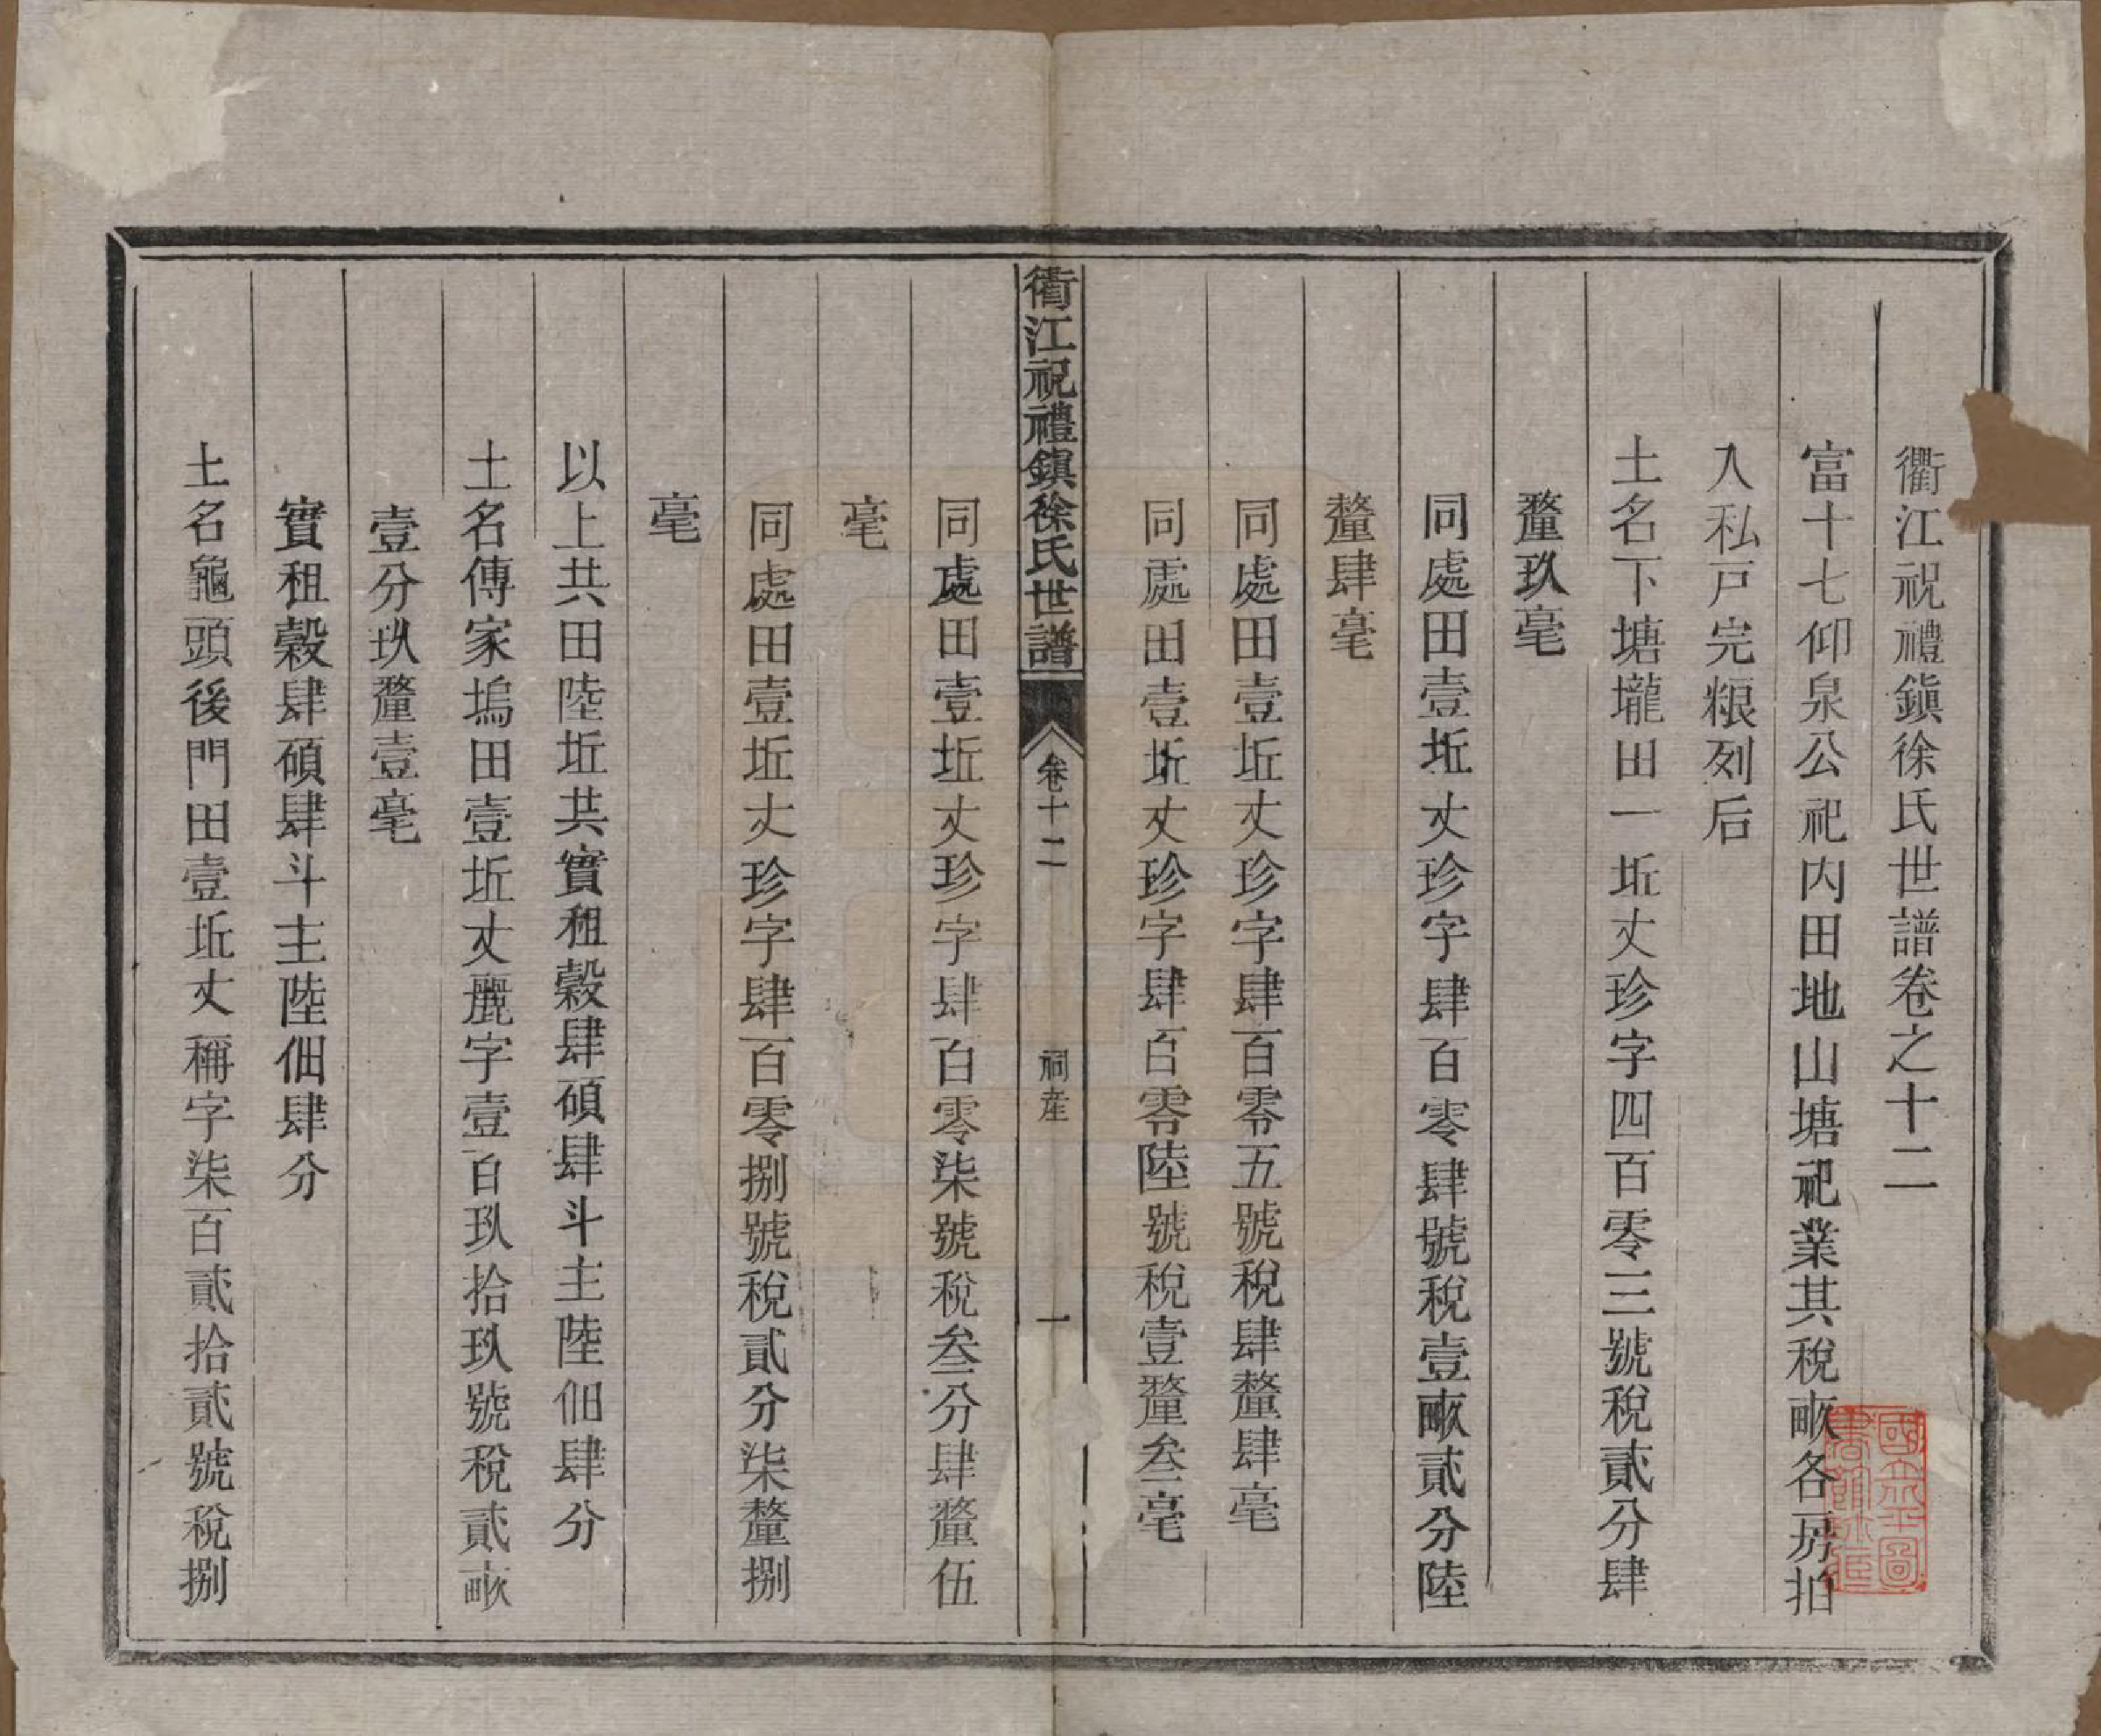 衢江祝禮鎮徐氏世譜卷之十二
富十七仰泉公祀内田地山塘祀業其稅畝各房拍
入私戸完粮列后
土名下塘壠田一坵丈珍字四百零三號稅貳分肆
釐玖毫
同處田壹坵丈珍字肆百零肆號稅壹畝貳分陸
釐肆毫
同處田壹坵丈珍字肆百零五號稅肆釐肆毫
同處田壹坵丈珍字肆百零陸號稅壹釐叁毫
衢江祝禮鎮徐氏世譜
卷十二
祠產
一
同處田壹坵丈珍字肆百零柒號稅叁分肆釐伍
毫
同處田壹坵丈珍字肆百零捌號稅貳分柒釐捌
毫
以上共田陸坵共實租穀肆碩肆斗主陸佃肆分
土名傅家塢田壹坵丈麗字壹百玖拾玖號稅貳畝
壹分玖釐壹毫
實租穀肆碩肆斗主陸佃肆分
土名龜頭後門田壹坵丈稱字柒百貳拾貳號稅捌
國立北平圖
書館珍藏